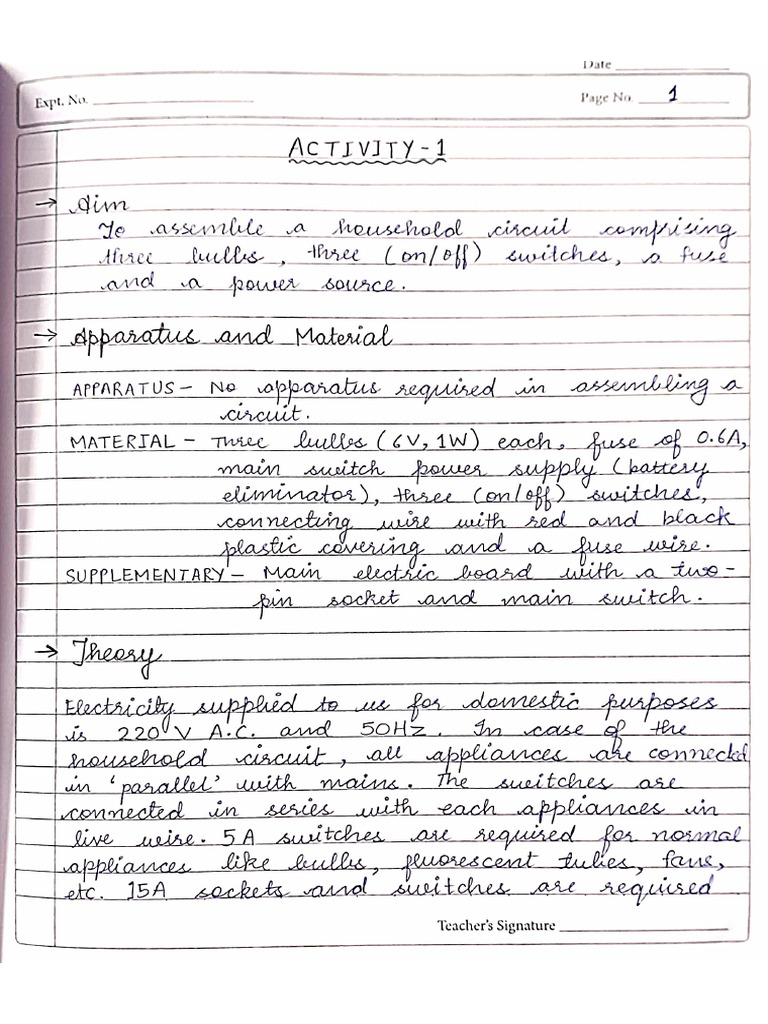 Date
Expt. No.
Page No. 1
ACTIVITY-1
→ Aim
To assemble a household circuit comprising
three bulbs, three (on/off) switches, a fuse
and a power source.
→ Apparatus and Material
APPARATUS – No apparatus required in assembling a
circuit.
MATERIAL – Three bulbs (6V, 1W) each, fuse of 0.6A,
main switch power supply (battery
eliminator), three (on/off) switches,
connecting wire with red and black
plastic covering and a fuse wire.
SUPPLEMENTARY – Main electric board with a two-
pin socket and main switch.
→ Theory
Electricity supplied to us for domestic purposes
is 220 V A.C. and 50Hz. In case of the
household circuit, all appliances are connected
in 'parallel' with mains. The switches are
connected in series with each appliances in
live wire. 5 A switches are required for normal
appliances like bulbs, fluorescent tubes, fans,
etc. 15A sockets and switches are required
Teacher's Signature